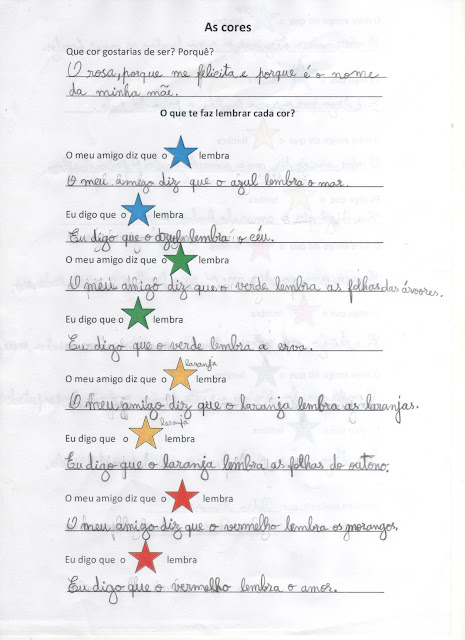 As cores
Que cor gostarias de ser? Porquê?
O rosa, porque me felicita e porque é o nome
da minha mãe.
O que te faz lembrar cada cor?
O meu amigo diz que o lembra
O meu amigo diz que o azul lembra o mar.
Eu digo que o lembra
Eu digo que o azul lembra o céu.
O meu amigo diz que o lembra
O meu amigo diz que o verde lembra as folhas das árvores.
Eu digo que o lembra
Eu digo que o verde lembra a erva.
laranja
O meu amigo diz que o lembra
O meu amigo diz que o laranja lembra as laranjas.
laranja
Eu digo que o lembra
Eu digo que o laranja lembra as folhas do outono.
O meu amigo diz que o lembra
O meu amigo diz que o vermelho lembra os morangos.
Eu digo que o lembra
Eu digo que o vermelho lembra o amor.